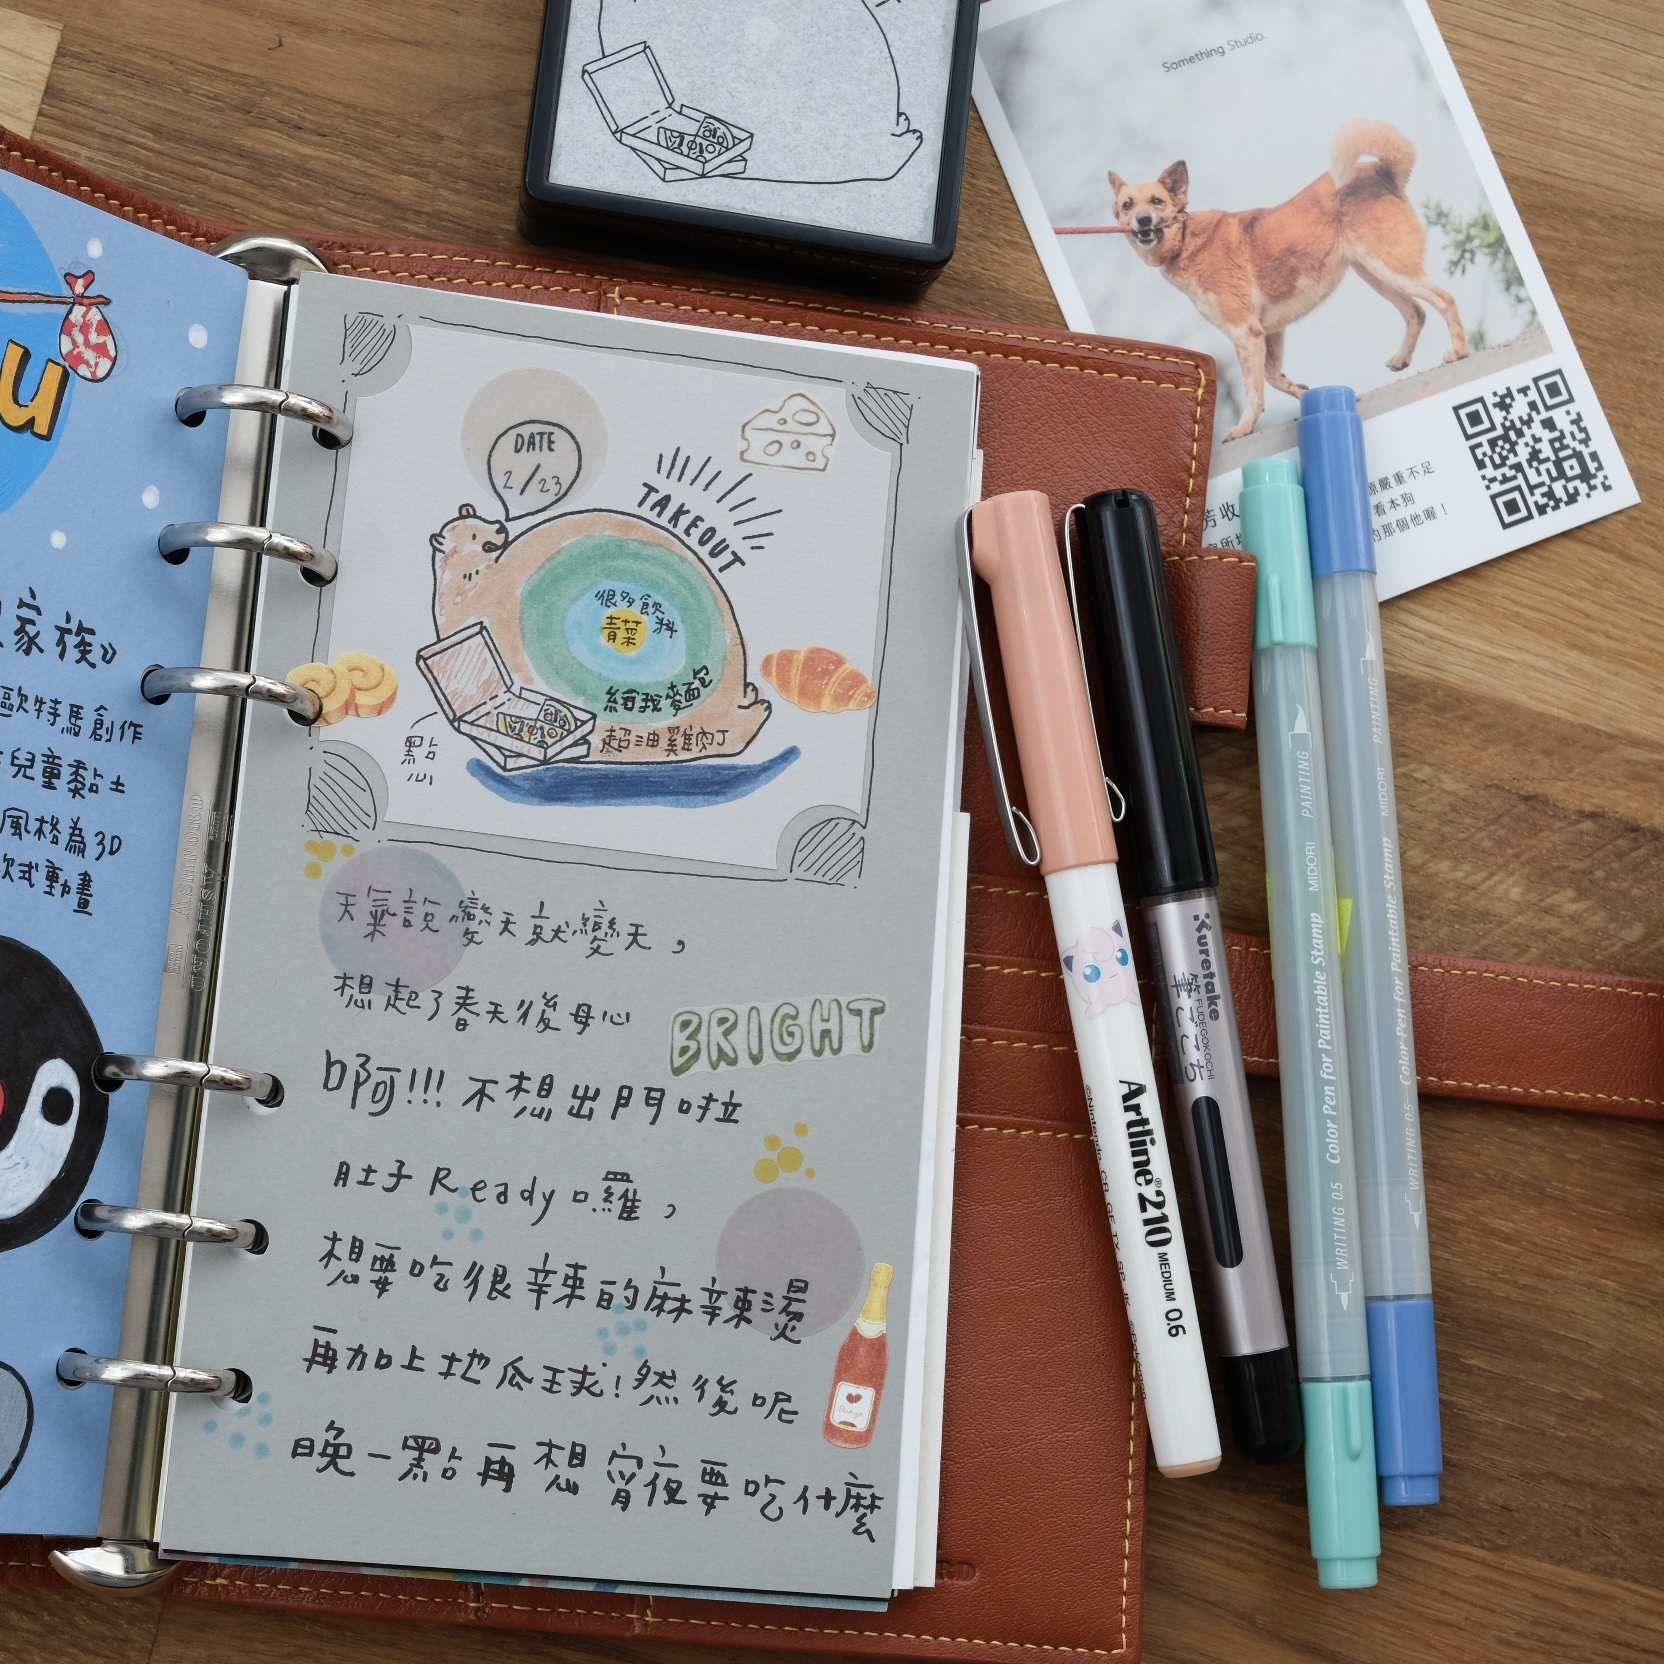 Something Studio.
u
家族》
歐特馬創作
兒童黏土
風格為3D
款式動畫
ASHFORD
DATE
2/23
TAKEOUT
很多飲料
青菜
超油雞肉丁
點心
天氣說變天就變天，
想起了春天後母心
BRIGHT
啊!!! 不想出門啦
肚子 Ready 囉，
想要吃很辣的麻辣燙
再加上地瓜球!然後呢
晚一點再想宵夜要吃什麼
Artline®210 MEDIUM 0.6
Kuretake
筆ごこち
FUDEGOKOCHI
WRITING 0.5 Color Pen for Paintable Stamp MIDORI PAINTING
WRITING 0.5 Color Pen for Paintable Stamp MIDORI PAINTING
嚴重不足
看本狗
的那個他喔！